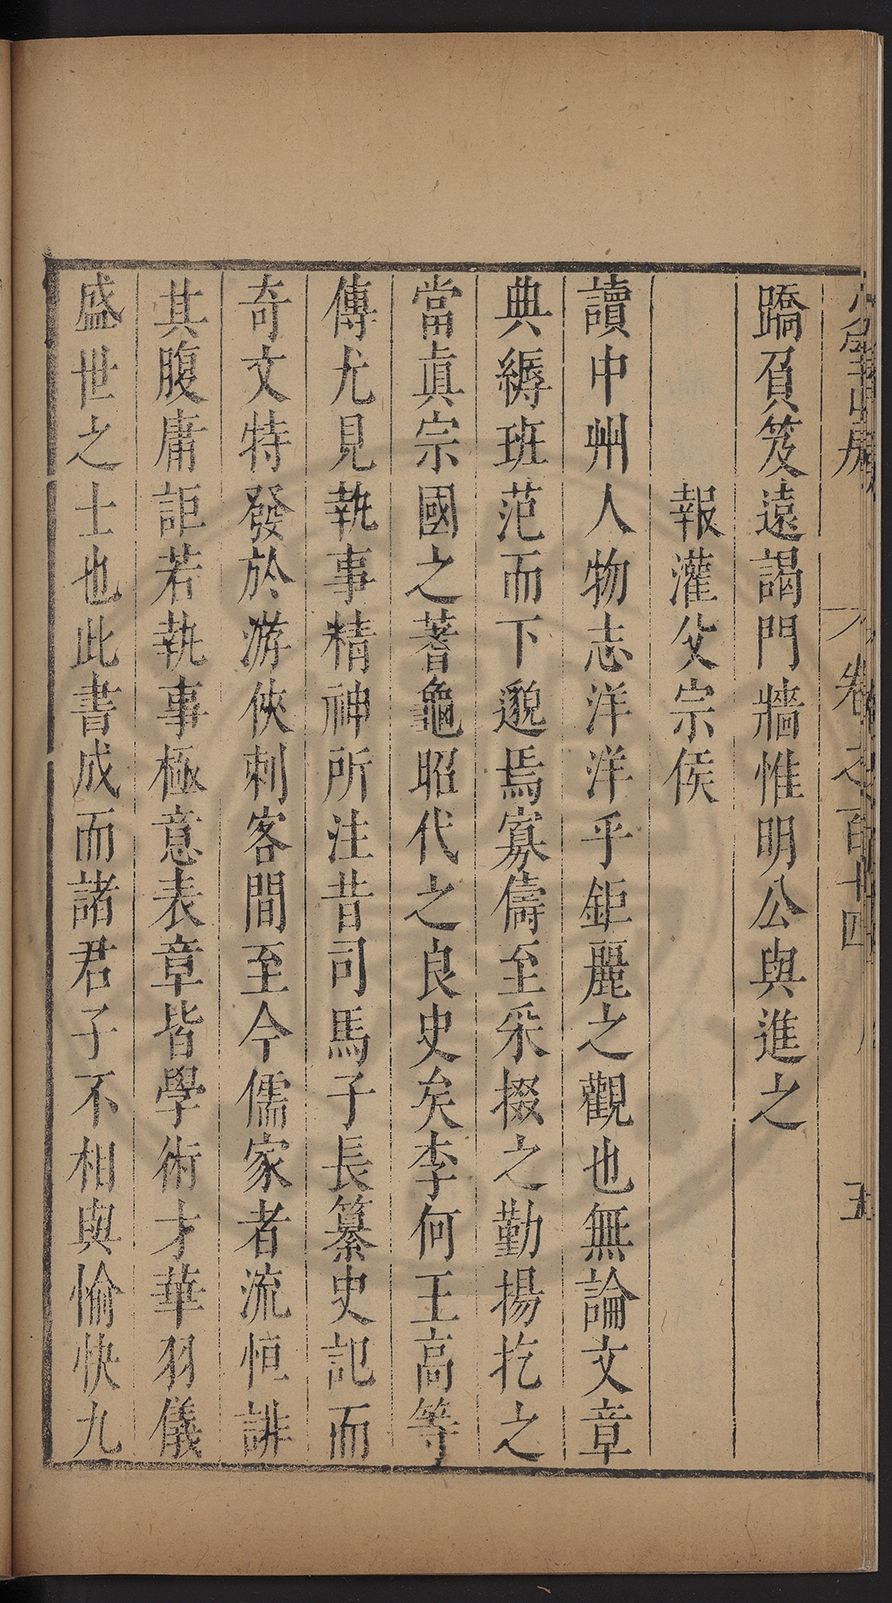 蹻負笈遠謁門牆惟明公與進之
報灌父宗侯
讀中州人物志洋洋乎鉅麗之觀也無論文章
典縟班范而下邈焉寡儔至采掇之勤揚扢之
當眞宗國之蓍龜昭代之良史矣李何王高等
傳尤見執事精神所注昔司馬子長纂史記而
奇文特發於游俠刺客間至今儒家者流恒誹
其腹庸詎若執事極意表章皆學術才華羽儀
盛世之士也此書成而諸君子不相與愉快九
卷之百十四
五